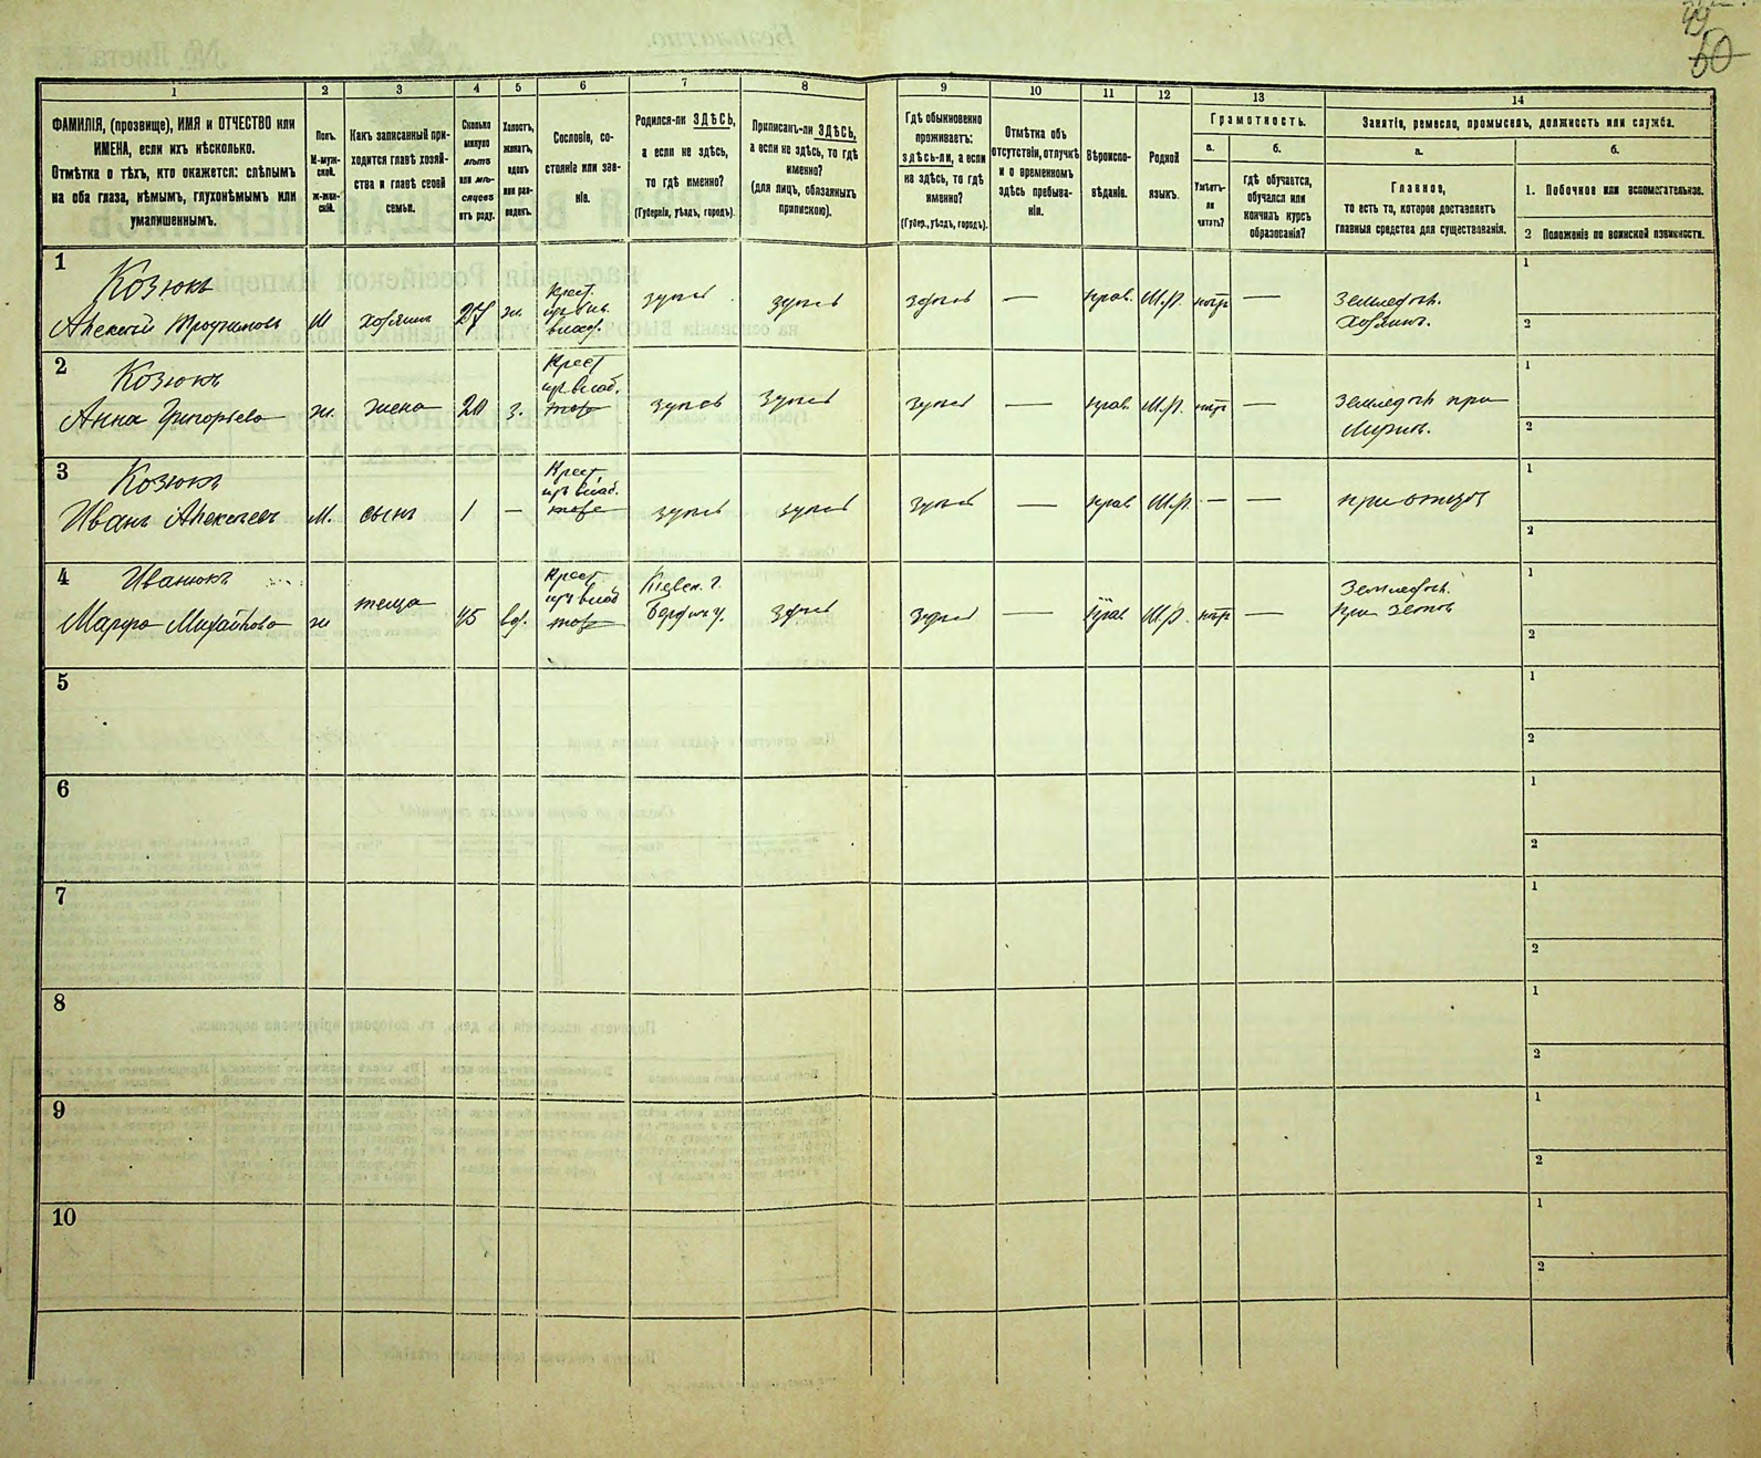 60
1
2
3
4
5
6
7
8
9
10
11
12
13
14
ФАМИЛІЯ, (прозвище), ИМЯ и ОТЧЕСТВО или
ИМЕНА, если ихъ нѣсколько.
Отмѣтка о тѣхъ, кто окажется: слѣпымъ
на оба глаза, нѣмымъ, глухонѣмымъ или
умалишеннымъ.
Полъ.
М-муж-
ской.
ж-жен-
скій.
Какъ записанный при-
ходится главѣ хозяй-
ства и главѣ своей
семьи.
Сколько
минуло
лѣтъ
или мѣ-
сяцевъ
отъ роду.
Холостъ,
женатъ,
вдовъ
или раз-
веденъ.
Сословіе, со-
стояніе или зва-
ніе.
Родился-ли ЗДѢСЬ,
а если не здѣсь,
то гдѣ именно?
(Губернія, уѣздъ, городъ).
Приписанъ-ли ЗДѢСЬ,
а если не здѣсь, то гдѣ
именно?
(для лицъ, обязанныхъ
припискою).
Гдѣ обыкновенно
проживаетъ:
здѣсь-ли, а если
не здѣсь, то гдѣ
именно?
(Губер., уѣздъ, городъ).
Отмѣтка объ
отсутствіи, отлучкѣ
и о временномъ
здѣсь пребыва-
ніи.
Вѣроиспо-
вѣданіе.
Родной
языкъ.
Грамотность.
а.
Умѣетъ-
ли
читать?
б.
гдѣ обучается,
обучался или
кончилъ курсъ
образованія?
Занятіе, ремесло, промыселъ, должность или служба.
а.
Главное,
то есть то, которое доставляетъ
главныя средства для существованія.
б.
1. Побочное или вспомогательное.
2 Положеніе по воинской повинности.
1
Козюкъ
Алексѣй Трофимовъ
М
хозяинъ
27
ж.
Крест.
изъ
влад.
здѣсь
здѣсь
здѣсь
—
прав.
М.р.
нѣтъ
—
Земледѣл.
хозяинъ.
1
2
2
Козюкъ
Анна Григорьева
ж.
жена
20
з.
Крест
изъ влад.
здѣсь
здѣсь
здѣсь
—
прав.
М.р.
нѣтъ
—
Земледѣл при
1
2
3
Козюкъ
Иванъ Алексѣевъ
М.
сынъ
1
—
Крест
изъ влад.
здѣсь
здѣсь
здѣсь
—
прав
М.р.
—
—
при отцѣ
1
2
4
Иванюкъ
Марфа Михайлова
ж
теща
45
вд.
Крест
изъ влад
Кіевск. г.
Бердич у.
здѣсь
здѣсь
—
прав
М.р.
нѣтъ
—
Земледѣл.
при зятѣ
1
2
5
1
2
6
1
2
7
1
2
8
1
2
9
1
2
10
1
2